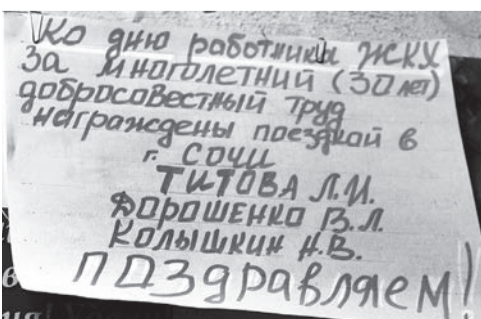 Ко дню работники ЖКХ
За многолетний (30 лет)
добросовестный труд
награждены поездкой в
г. Сочи
ТИТОВА Л.И.
ДОРОШЕНКО В.Л.
КОЛЫШКИН Н.В.
ПОЗдравляем!